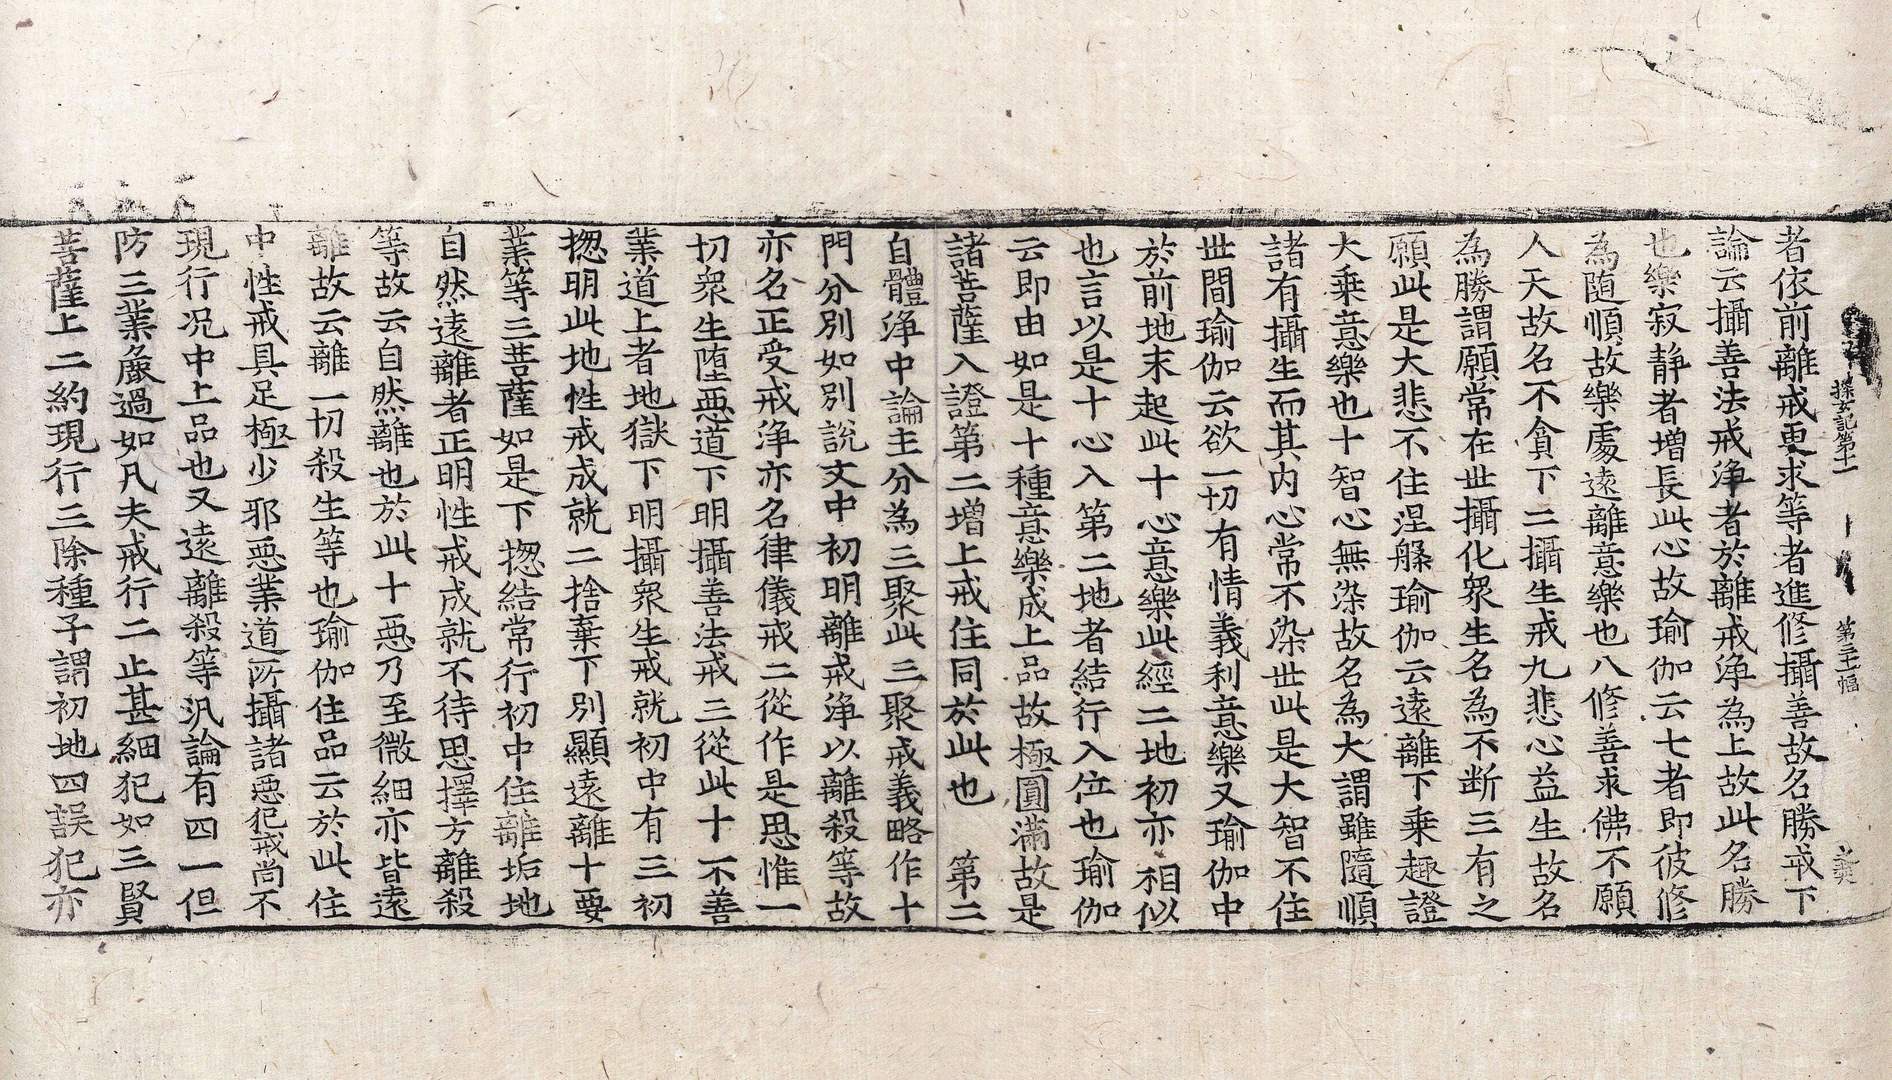 探玄記第十一　第三十一幅
者依前離戒更求等者進修攝善故名勝戒下
論云攝善法戒淨者於離戒淨為上故此名勝
也樂寂靜者增長此心故瑜伽云七者即彼修
為隨順故樂處遠離意樂也八修善求佛不願
人天故名不貪下二攝生戒九悲心益生故名
為勝謂願常在世攝化衆生名為不断三有之
願此是大悲不住涅槃瑜伽云遠離下乗趣證
大乗意樂也十智心無染故名為大謂雖隨順
諸有攝生而其内心常不染世此是大智不住
世間瑜伽云欲一切有情義利意樂又瑜伽中
於前地末起此十心意樂此經二地初亦相似
也言以是十心入第二地者結行入位也瑜伽
云即由如是十種意樂成上品故極圓滿故是
諸菩薩入證第二增上戒住同於此也　第二
自體淨中論主分為三聚此三聚戒義略作十
門分別如別說文中初明離戒淨以離殺等故
亦名正受戒淨亦名律儀戒二從作是思惟一
切衆生堕惡道下明攝善法戒三從此十不善
業道上者地獄下明攝衆生戒就初中有三初
揔明此地性戒成就二捨棄下別顯遠離十要
業等三菩薩如是下揔結常行初中住離垢地
自然遠離者正明性戒成就不待思擇方離殺
等故云自然離也於此十惡乃至微細亦皆遠
離故云離一切殺生等也瑜伽住品云於此住
中性戒具足極少邪惡業道所攝諸惡犯戒尚不
現行况中上品也又遠離殺等汎論有四一但
防三業麁過如凡夫戒行二止甚細犯如三賢
菩薩上二約現行三除種子謂初地四誤犯亦